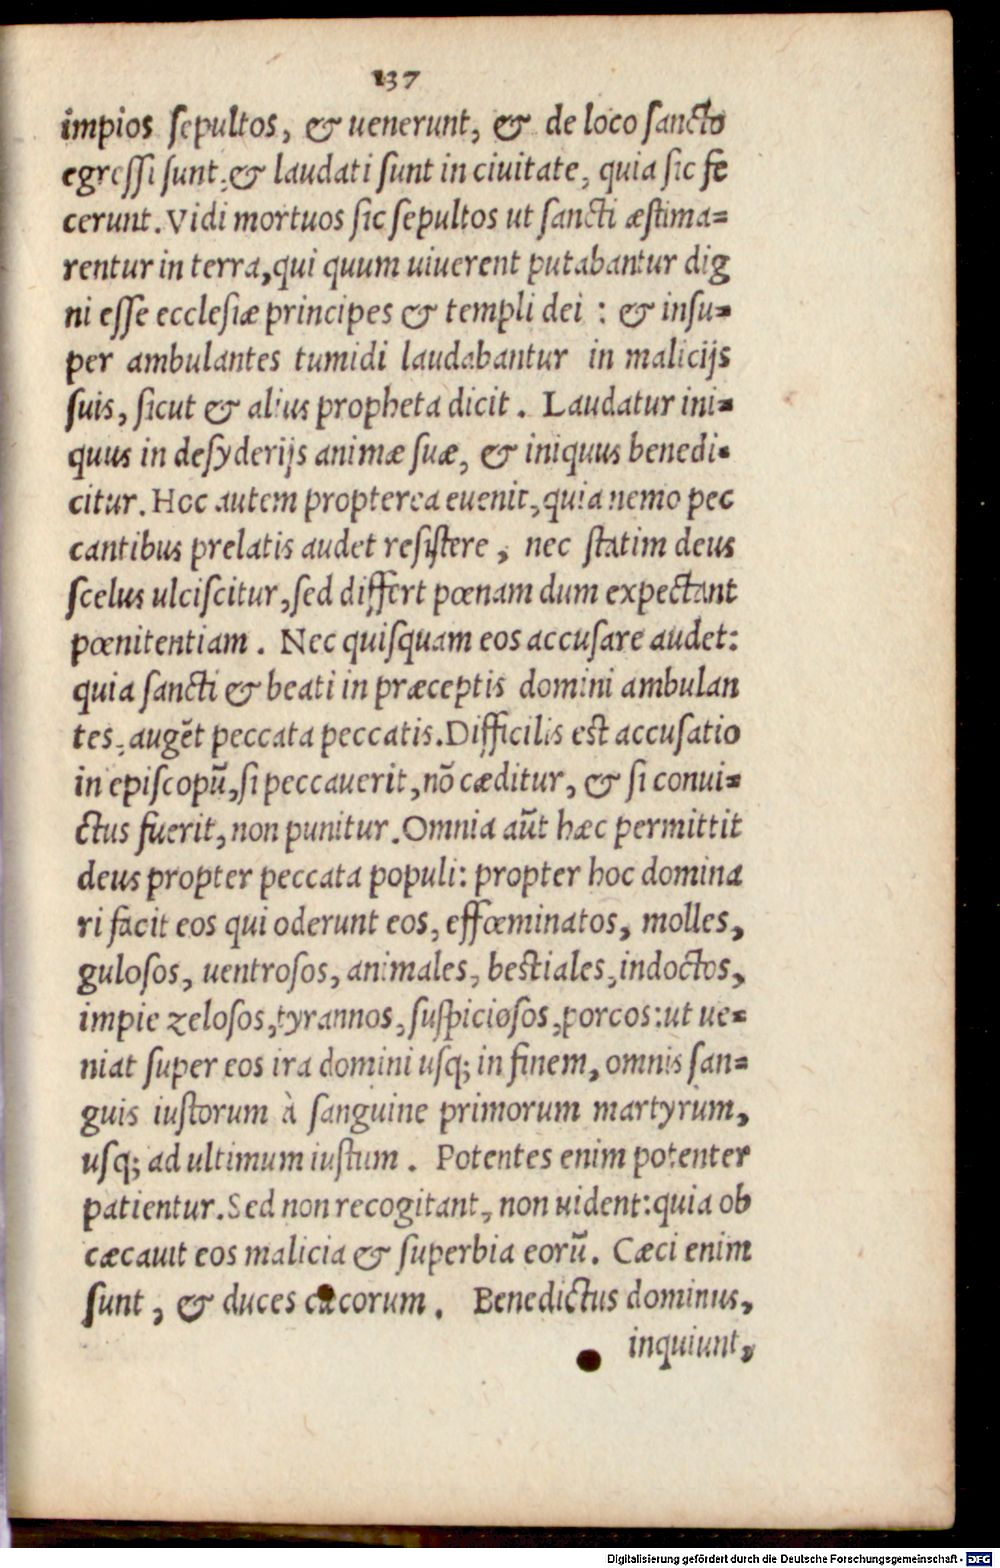 137
impios sepultos, & uenerunt, & de loco sancto
egressi sunt, & laudati sunt in ciuitate, quia sic fe
cerunt. Vidi mortuos sic sepultos ut sancti æstima=
rentur in terra, qui quum uiuerent putabantur dig
ni esse ecclesiæ principes & templi dei : & insu=
per ambulantes tumidi laudabantur in malicijs
suis, sicut & alius propheta dicit. Laudatur ini=
quus in desyderijs animæ suæ, & iniquus benedi=
citur. Hoc autem propterea euenit, quia nemo pec
cantibus prelatis audet resistere, nec statim deus
scelus ulciscitur, sed differt pœnam dum expectant
pœnitentiam. Nec quisquam eos accusare audet:
quia sancti & beati in præceptis domini ambulan
tes, augēt peccata peccatis. Difficilis est accusatio
in episcopū, si peccauerit, nō cæditur, & si conui=
ctus fuerit, non punitur. Omnia aūt hæc permittit
deus propter peccata populi: propter hoc domina
ri facit eos qui oderunt eos, effœminatos, molles,
gulosos, uentrosos, animales, bestiales, indoctos,
impie zelosos, tyrannos, suspiciosos, porcos: ut ue=
niat super eos ira domini usq; in finem, omnis san=
guis iustorum à sanguine primorum martyrum,
usq; ad ultimum iustum. Potentes enim potenter
patientur. Sed non recogitant, non uident: quia ob
cæcauit eos malicia & superbia eorū. Cæci enim
sunt, & duces cæcorum. Benedictus dominus,
inquiunt,
Digitalisierung gefördert durch die Deutsche Forschungsgemeinschaft - DFG